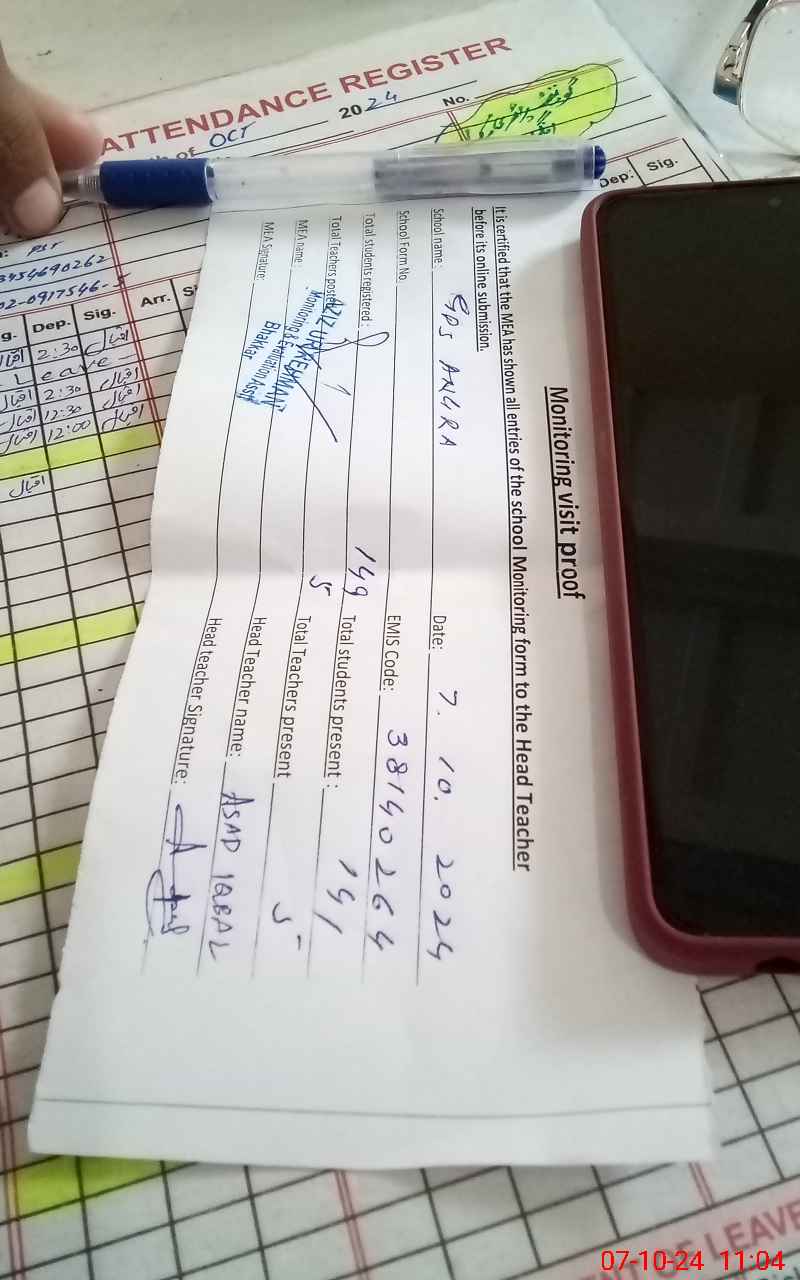 ATTENDANCE REGISTER
OCT 2024 No.
Dep: Sig.
PST
3454690262
02-0917546-5
g. Dep. Sig. Arr.
اقبال 2:30 اقبال
Leave
اقبال 2:30 اقبال
اقبال 12:30 اقبال
اقبال 12:00 اقبال
اقبال
Monitoring visit proof
It is certified that the MEA has shown all entries of the school Monitoring form to the Head Teacher
before its online submission.
School name: GPS ANGRA Date: 7.10.2024
School Form No. EMIS Code: 38140264
Total students registered: 149 Total students present: 141
Total Teachers posted: 5 Total Teachers present 5
MEA name: AZIZ UR REHMAN Head Teacher name: ASAD IQBAL
Monitoring & Evaluation Asstt
Bhakkar
MEA Signature: Head teacher Signature:
LEAVE
07-10-24 11:04